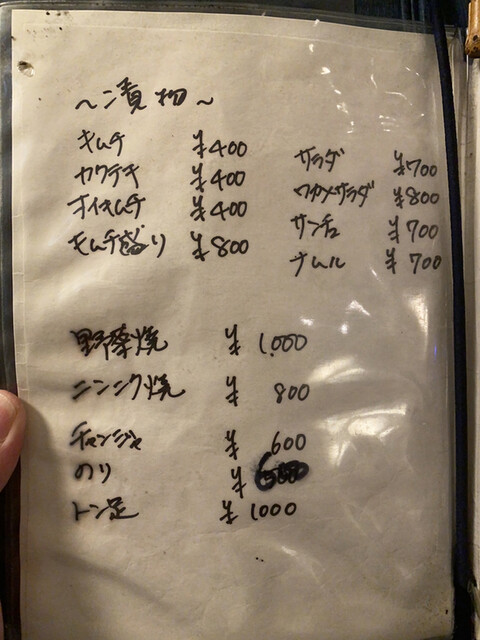 ～漬物～
キムチ ¥400
カクテキ ¥400
オイキムチ ¥400
キムチ盛り ¥800
サラダ ¥700
ワカメサラダ ¥800
サンチュ ¥700
ナムル ¥700
野菜焼 ¥1,000
ニンニク焼 ¥800
チャンジャ ¥600
のり ¥
トン足 ¥1000